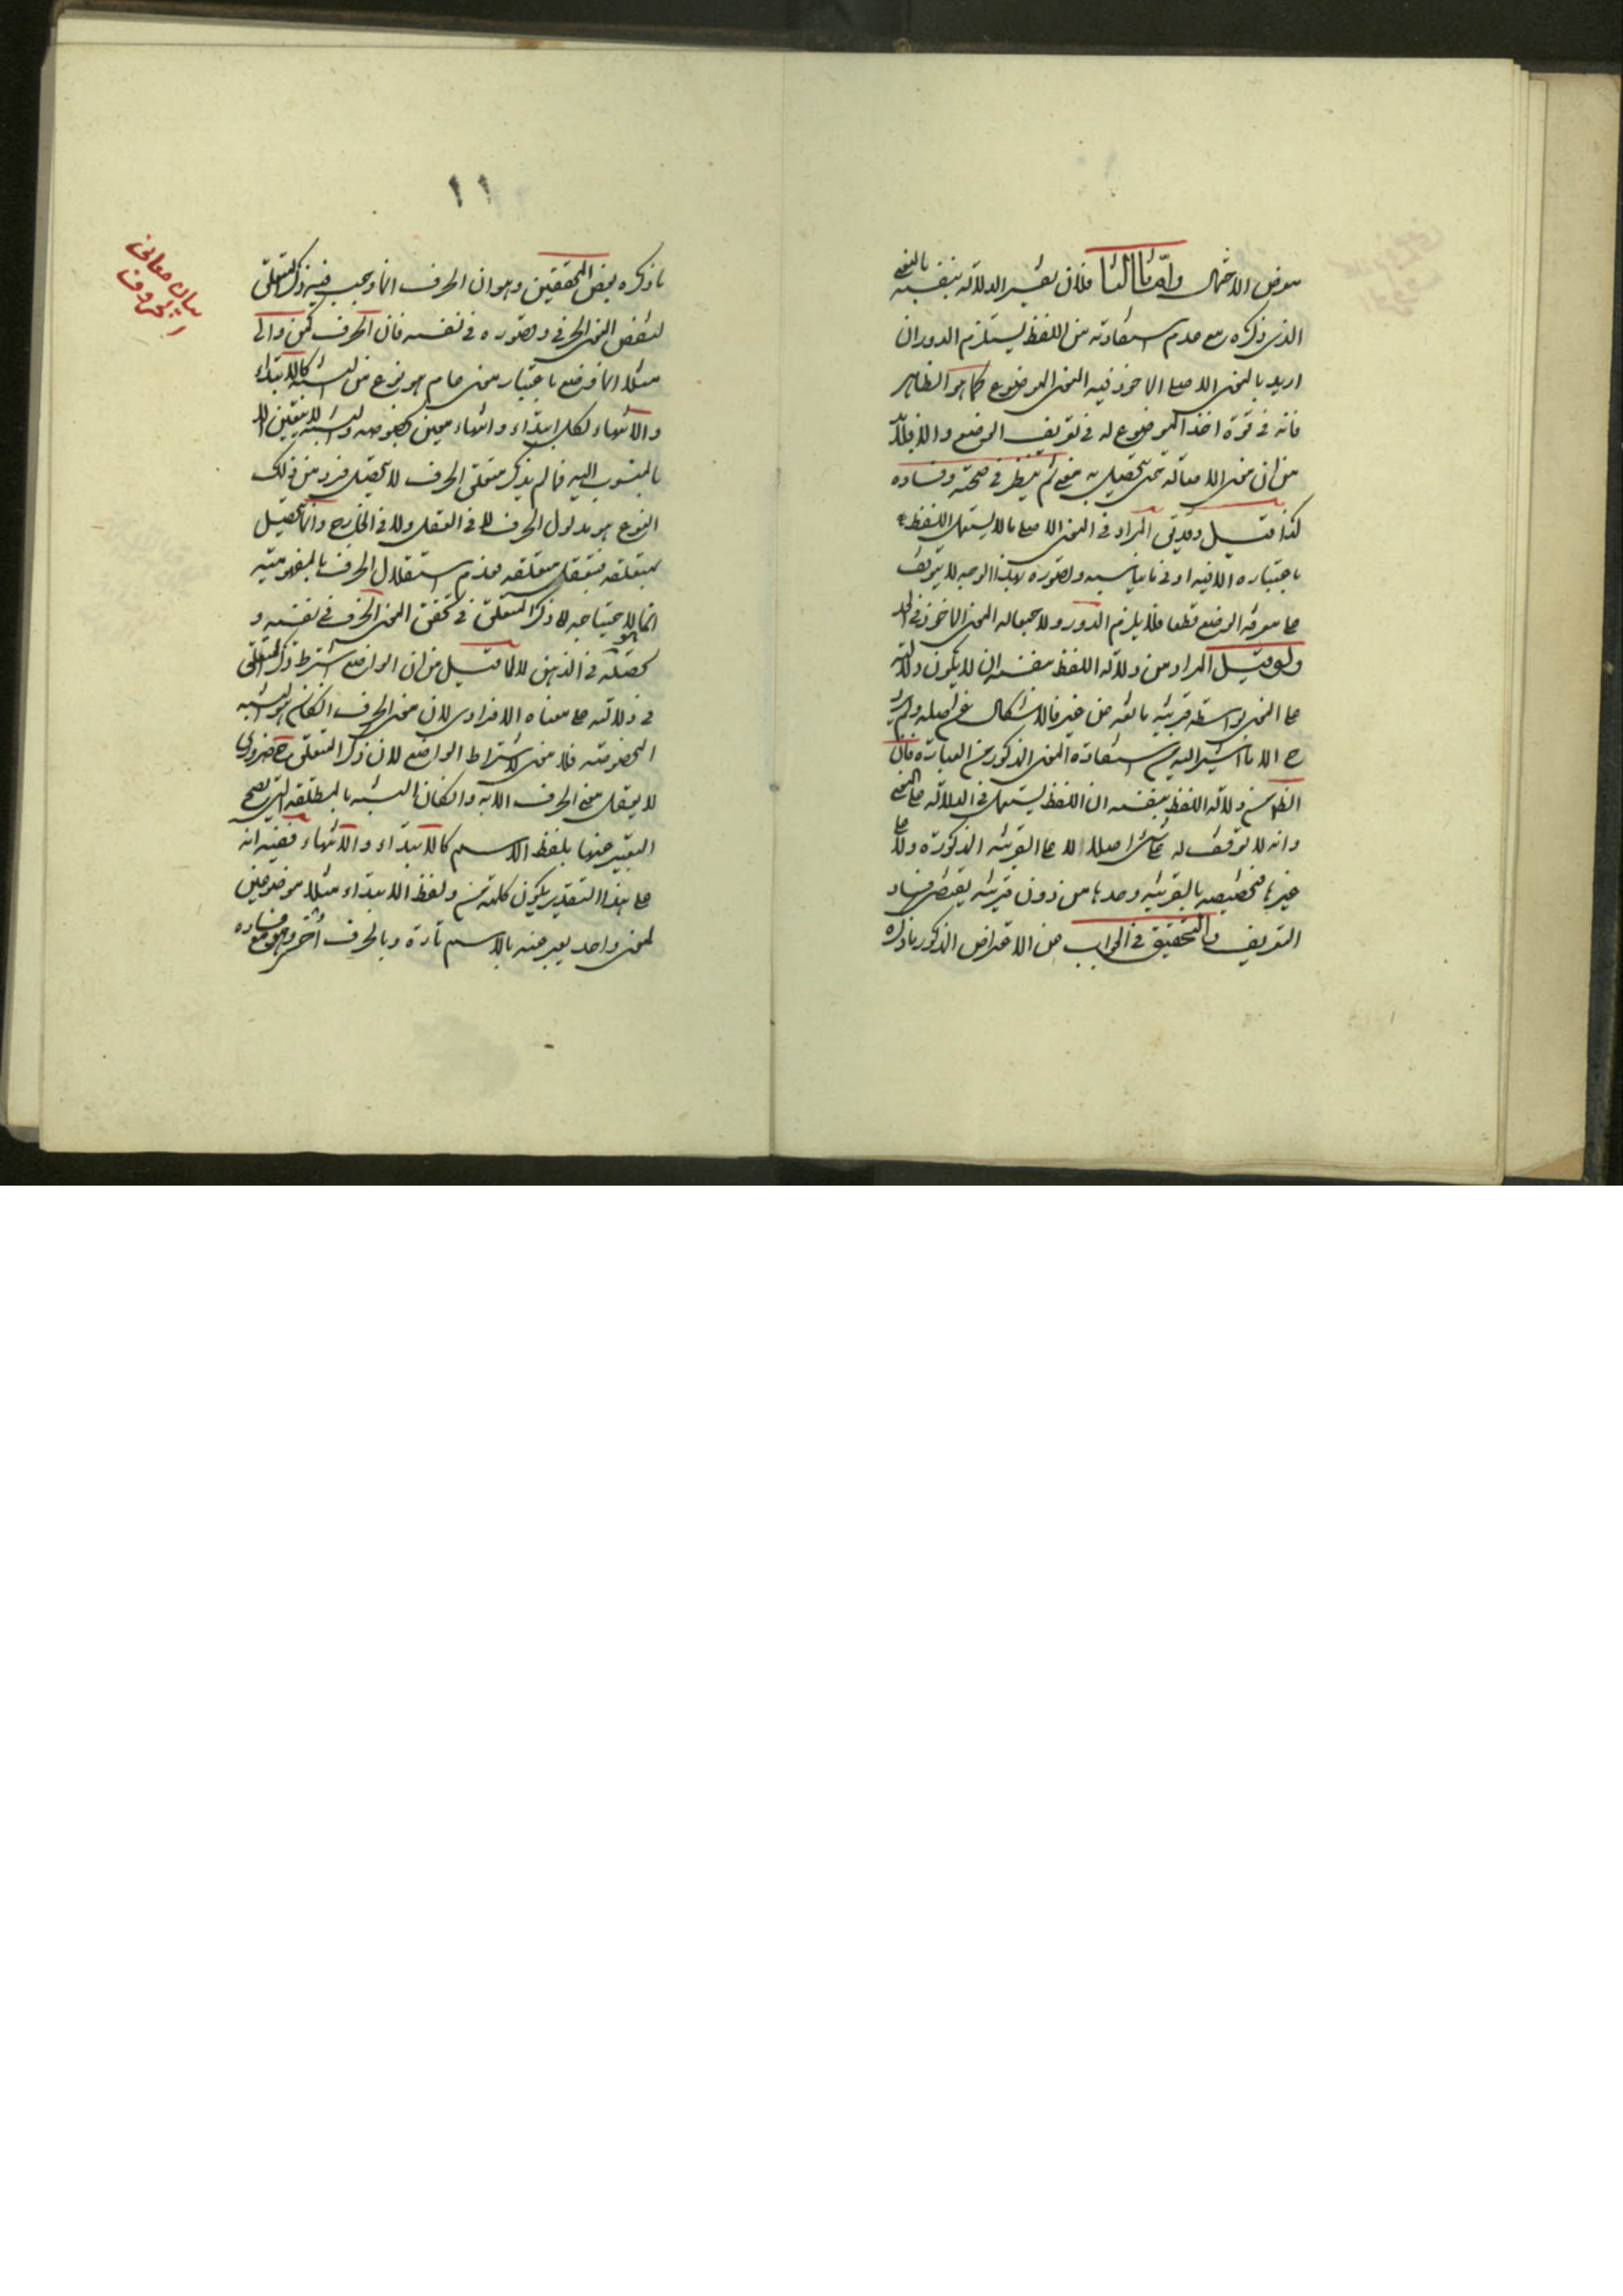 معرض الاحتمال واما ثالثا فلان تفسير الدلالة بنفسه بالمعنى
الذى ذكره مع عدم استفادته من اللفظ يستلزم الدور ان
اريد بالمعنى الاصلى الماخوذ فيه المعنى الموضوع كما هو الظاهر
فانه فى قوة اخذ الموضوع له فى تعريف الوضع والا فلابد
من ان معنى الاصالة حتى يتحصل به معنى ثم ينظر فى صحته وفساده
كذا قيل وقد يق المراد فى المعنى الاصلى ما لا يستعمل اللفظ
باعتباره الا فيه او فى ما يناسبه وتصوره بهذا الوجه لا يتوقف
على معرفة الوضع قطعا فلا يلزم الدور ولا جهالة المعنى الماخوذ فى الحد
ولو قيل المراد من دلالة اللفظ بنفسه ان لا يكون دلالته
على المعنى بواسطة قرينة مانعة عن غير فالاشكال غير اصله ولم يرد
ح الا ما اشير اليه من استفادة المعنى المذكور من العبارة فان
الظ من دلالة اللفظ بنفسه ان اللفظ يستعمل فى الدلالة على المعنى
وانه لا توقف له على شئ اصلا لا على القرينة المذكورة ولا على
غيرها فتخصيصه بالقرينة وحدها من دون قرينة يقتضى فساد
التعريف والتحقيق فى الجواب عن الاعتراض المذكور ما ذكره
١١
ما ذكره بعض المحققين وهو ان الحرف انما وجب فيه ذكر المتعلق
لنقض المعنى الحرفى وتصوره فى نفسه فان الحرف كمن والى
مثلا انما وضع باعتبار معنى عام هو نوع من النسبة كالابتداء
والانتهاء لكل ابتداء وانتهاء معين بخصوصه والنسبة لا يتعين الا
بالمنسوب اليه فما لم يذكر متعلق الحرف لا يتحصل فرد من ذلك
النوع هو مدلول الحرف لا فى العقل ولا فى الخارج وانما يتحصل
بمتعلقه فيتعقل بتعلقه فعدم استقلال الحرف بالمفهومية
انما هو لاحتياجه الى ذكر المتعلق فى تحقق المعنى الحرف فى نفسه و
تحصله فى الذهن لا لما قيل من ان الواضع اشترط ذكر المتعلق
فى دلالته على معناه الافرادى لان معنى الحرف ان كان هو النسبة
المخصوصة فلا معنى لاشتراط الواضع لان ذكر المتعلق ح ضرورى
لا يعقل معنى الحرف الا به وان كان النسبة المطلقة التى يصح
التعبير عنها بلفظ الاسم كالابتداء والانتهاء ففيه انه
على هذا التقدير يكون كلمة من ولفظ الابتداء مثلا موضوعين
لمعنى واحد يعبر عنه بالاسم تارة وبالحرف اخرى وهو مع فساده
بيان معانى
الحروف